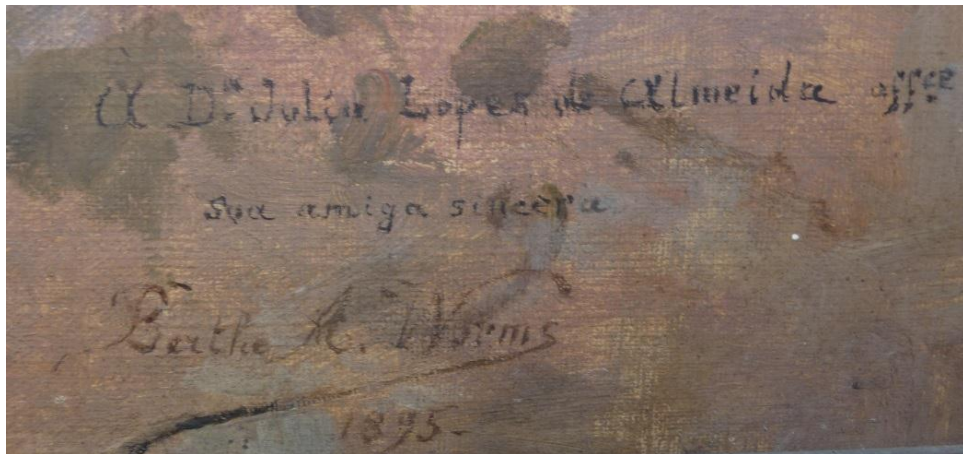 À Dª Julia Lopes de Almeida offce
sua amiga sincèra
Berthe A. Worms
1895-